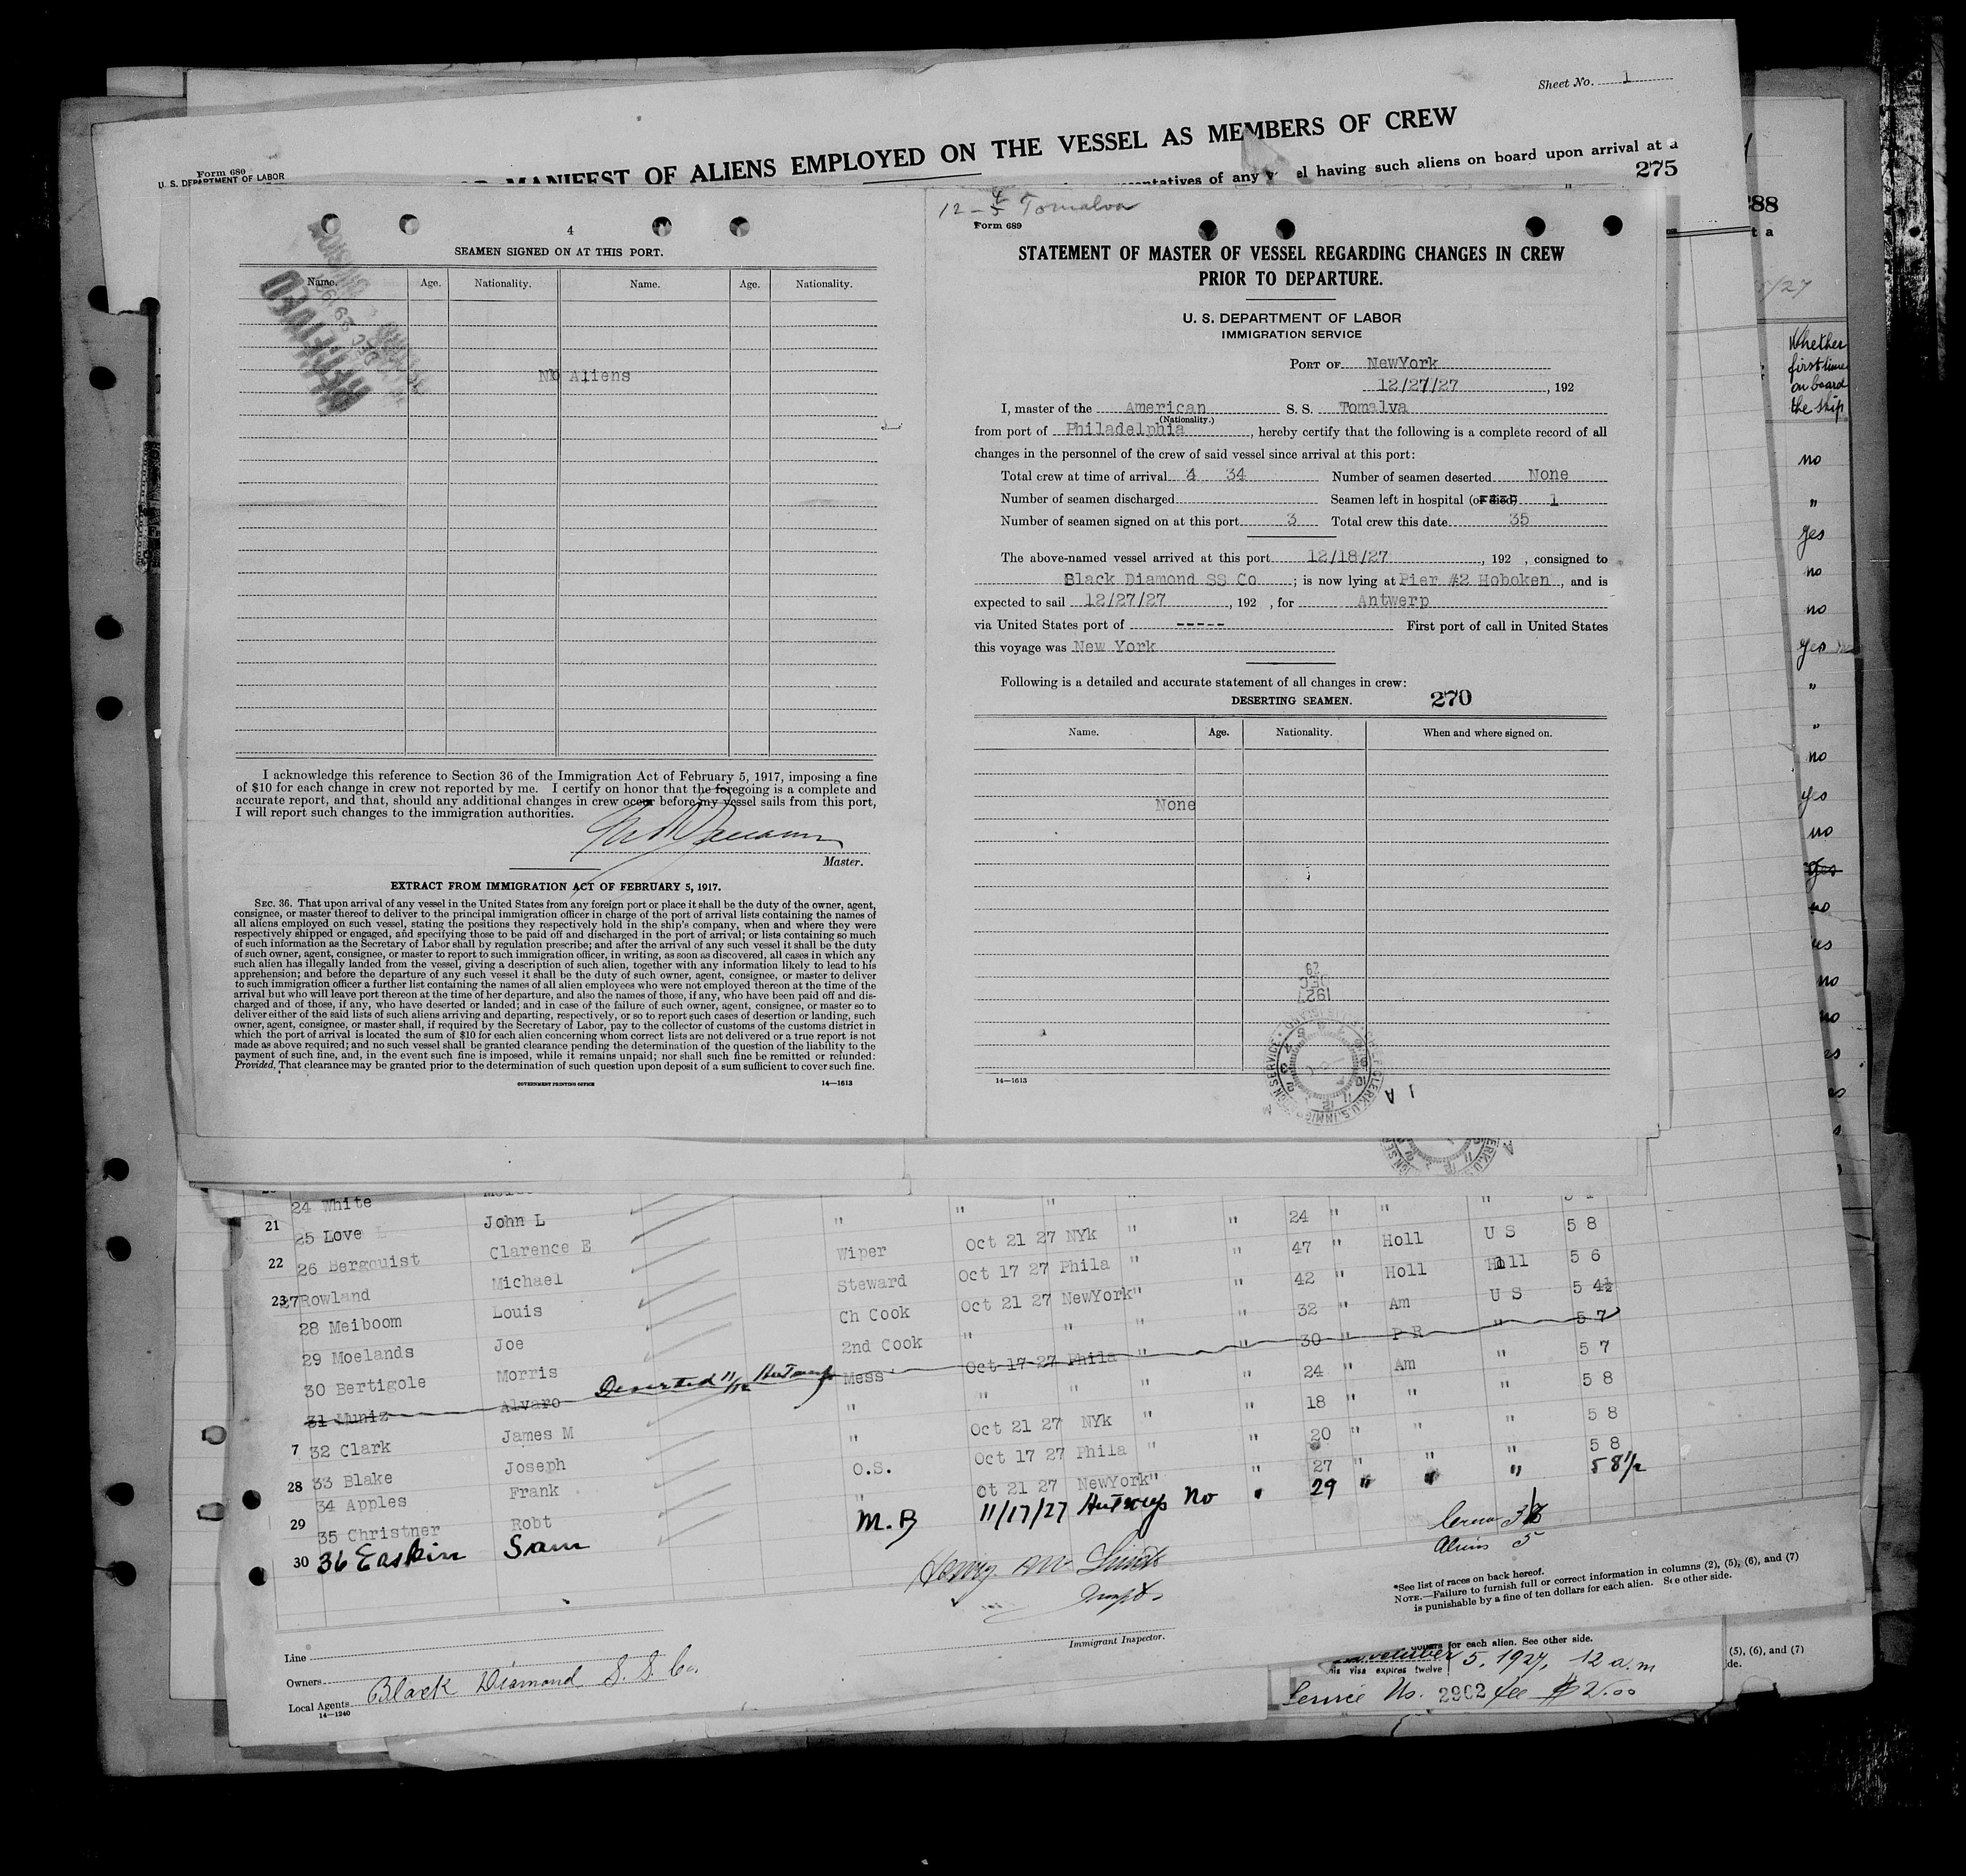 Sheet No. 1
MANIFEST OF ALIENS EMPLOYED ON THE VESSEL AS MEMBERS OF CREW
Form 680
U. S. DEPARTMENT OF LABOR
having such aliens on board upon arrival at a
275
4
SEAMEN SIGNED ON AT THIS PORT.
Name. Age. Nationality. Name. Age. Nationality.
No Aliens
I acknowledge this reference to Section 36 of the Immigration Act of February 5, 1917, imposing a fine
of $10 for each change in crew not reported by me. I certify on honor that the foregoing is a complete and
accurate report, and that, should any additional changes in crew occur before my vessel sails from this port,
I will report such changes to the immigration authorities.
Master.
EXTRACT FROM IMMIGRATION ACT OF FEBRUARY 5, 1917.
SEC. 36. That upon arrival of any vessel in the United States from any foreign port or place it shall be the duty of the owner, agent,
consignee, or master thereof to deliver to the principal immigration officer in charge of the port of arrival lists containing the names of
all aliens employed on such vessel, stating the positions they respectively hold in the ship's company, when and where they were
respectively shipped or engaged, and specifying those to be paid off and discharged in the port of arrival; or lists containing so much
of such information as the Secretary of Labor shall by regulation prescribe; and after the arrival of any such vessel it shall be the duty
of such owner, agent, consignee, or master to report to such immigration officer, in writing, as soon as discovered, all cases in which any
such alien has illegally landed from the vessel, giving a description of such alien, together with any information likely to lead to his
apprehension; and before the departure of any such vessel it shall be the duty of such owner, agent, consignee, or master to deliver
to such immigration officer a further list containing the names of all alien employees who were not employed thereon at the time of the
arrival but who will leave port thereon at the time of her departure, and also the names of those, if any, who have been paid off and dis-
charged and of those, if any, who have deserted or landed; and in case of the failure of such owner, agent, consignee, or master so to
deliver either of the said lists of such aliens arriving and departing, respectively, or so to report such cases of desertion or landing, such
owner, agent, consignee, or master shall, if required by the Secretary of Labor, pay to the collector of customs of the customs district in
which the port of arrival is located the sum of $10 for each alien concerning whom correct lists are not delivered or a true report is not
made as above required; and no such vessel shall be granted clearance pending the determination of the question of the liability to the
payment of such fine, and, in the event such fine is imposed, while it remains unpaid; nor shall such fine be remitted or refunded:
Provided, That clearance may be granted prior to the determination of such question upon deposit of a sum sufficient to cover such fine.
GOVERNMENT PRINTING OFFICE 14—1613
12-4 Tomalva
Form 689
STATEMENT OF MASTER OF VESSEL REGARDING CHANGES IN CREW
PRIOR TO DEPARTURE.
U. S. DEPARTMENT OF LABOR
IMMIGRATION SERVICE
PORT OF NewYork
12/27/27, 192
I, master of the American S. S. Tomalva
(Nationality.)
from port of Philadelphia, hereby certify that the following is a complete record of all
changes in the personnel of the crew of said vessel since arrival at this port:
Total crew at time of arrival 34 Number of seamen deserted None
Number of seamen discharged Seamen left in hospital (or died) 1
Number of seamen signed on at this port 3 Total crew this date 35
The above-named vessel arrived at this port 12/18/27, 192 , consigned to
Black Diamond SS Co; is now lying at Pier #2 Hoboken, and is
expected to sail 12/27/27, 192 , for Antwerp
via United States port of ----- First port of call in United States
this voyage was New York
Following is a detailed and accurate statement of all changes in crew:
DESERTING SEAMEN. 270
Name. Age. Nationality. When and where signed on.
None
DEC
1927
14—1613
88
t a
Whether
first time
on board
the ship
no
"
yes
no
no
yes
"
"
no
yes
no
yes
no
no
no
24 White
21 25 Love John L " " " " " 24 " " "
22 26 Bergquist Clarence E Wiper Oct 21 27 NYk " " 47 " Holl U S 5 8
23 27 Rowland Michael Steward Oct 17 27 Phila " " 42 " Holl Holl 5 6
28 Meiboom Louis Ch Cook Oct 21 27 NewYork " " 32 " Am U S 5 4½
29 Moelands Joe 2nd Cook " " " " 30 " P R " 5 7
30 Bertigole Morris Mess Oct 17 27 Phila " " 24 " Am " 5 7
31 Muniz Alvaro Deserted 11/12 Antwerp " " " " " 18 " " " 5 8
7 32 Clark James M " Oct 21 27 NYk " " 20 " " " 5 8
28 33 Blake Joseph O.S. Oct 17 27 Phila " " 27 " " " 5 8
34 Apples Frank " Oct 21 27 NewYork "
29 35 Christner Robt
30 36 Easkin Sam M.B 11/17/27 Antwerp No " 29 " " " 5 8½
Aliens 5
Immigrant Inspector.
*See list of races on back hereof.
NOTE.—Failure to furnish full or correct information in columns (2), (5), (6), and (7)
is punishable by a fine of ten dollars for each alien. See other side.
Line
Owners
Local Agents Black Diamond S. S. Co.
14—1240
dollars for each alien. See other side.
visa expires twelve 5, 1927, 12 a.m
Service No. 2902 fee $2.00
(5), (6), and (7)